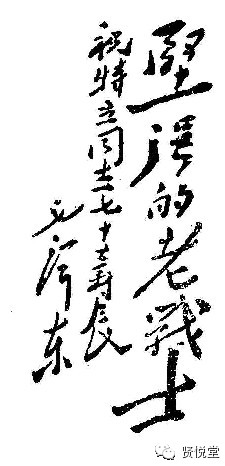 堅强的老戰士
祝特立同志七十寿辰
毛泽东
贤悦堂